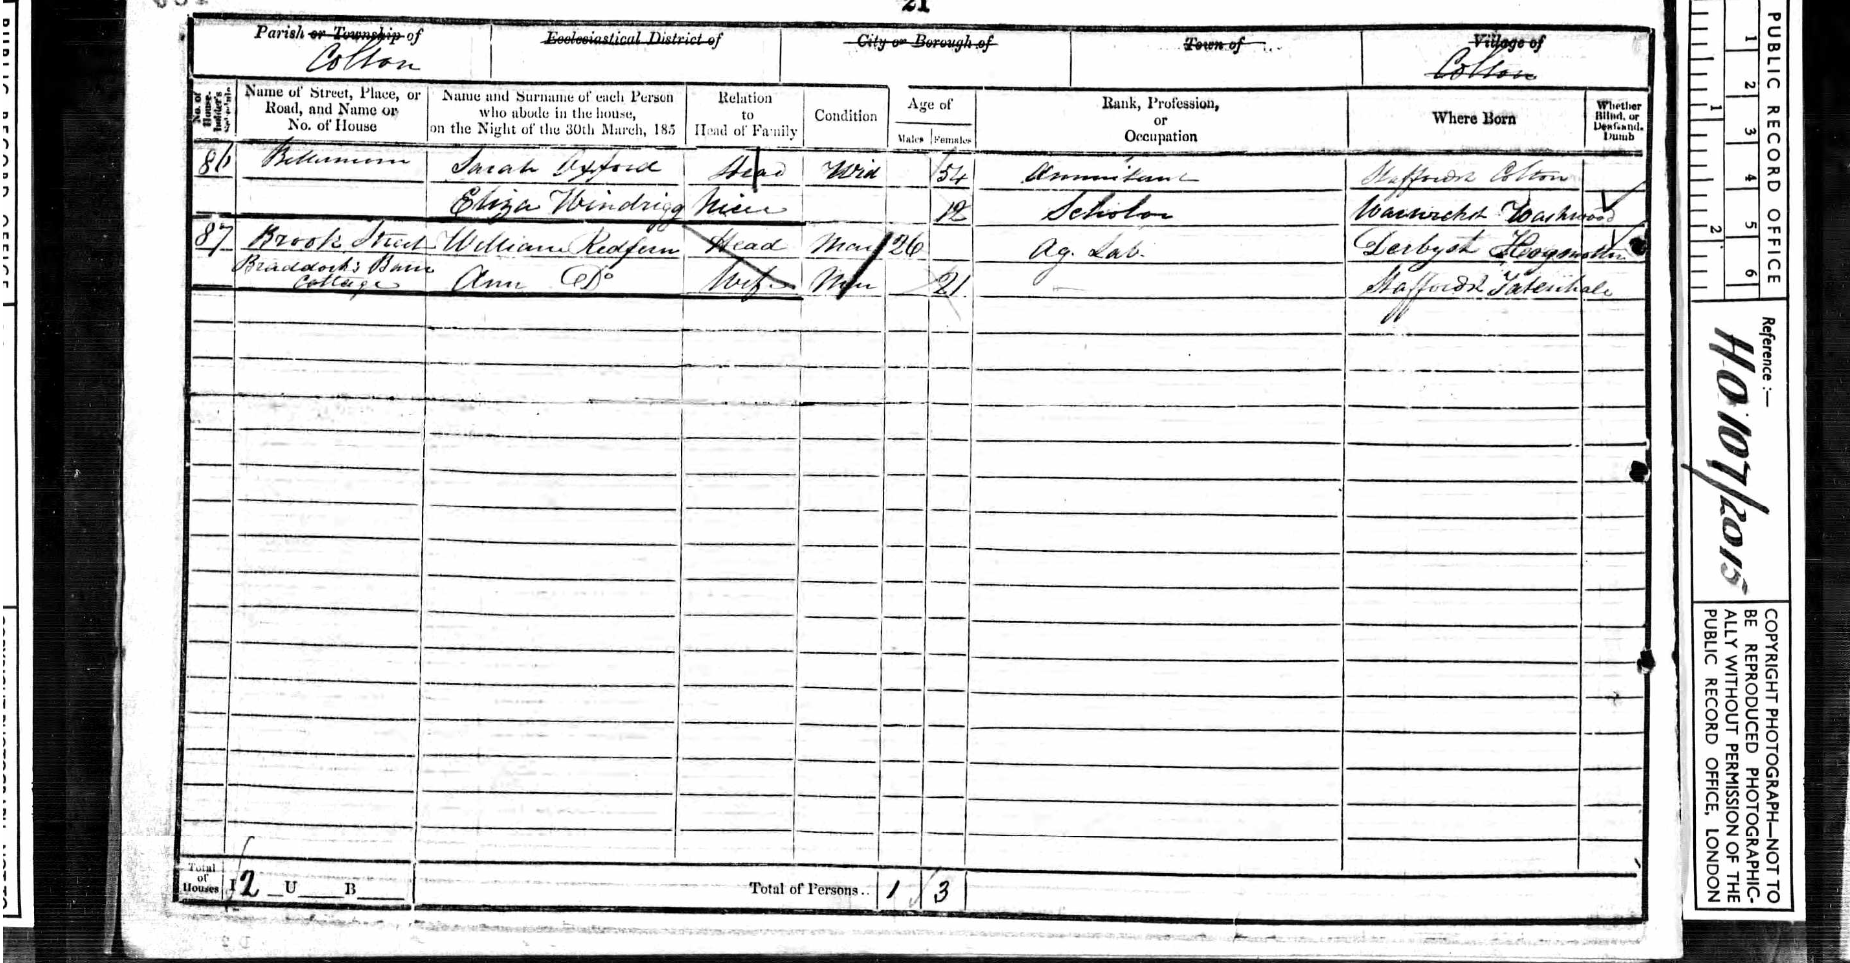 21
Parish or Township of
Colton
Ecclesiastical District of
City or Borough of
Town of
Village of
Colton
No. of House-holder's Schedule
Name of Street, Place, or Road, and Name or No. of House
Name and Surname of each Person who abode in the house, on the Night of the 30th March, 185
Relation to Head of Family
Condition
Age of
Males
Females
Rank, Profession, or Occupation
Where Born
Whether Blind, or Deaf-and-Dumb
86 Sarah Oxford Head Wid 54 Annuitant Staffordsh Colton
Eliza Windrigg Niece 12 Scholar Warwicksh Washwood
87 Brook Street William Redfern Head Mar 26 Ag. Lab. Derbysh
Braddock's Barn Cottage Ann Do Wife Mar 21 Staffordsh Tatenhale
Total of Houses I 2 U B
Total of Persons.. 1 3
PUBLIC RECORD OFFICE
1 2 3 4 5 6
1 2
Reference :—
HO 107/2015
COPYRIGHT PHOTOGRAPH—NOT TO
BE REPRODUCED PHOTOGRAPHIC-
ALLY WITHOUT PERMISSION OF THE
PUBLIC RECORD OFFICE, LONDON